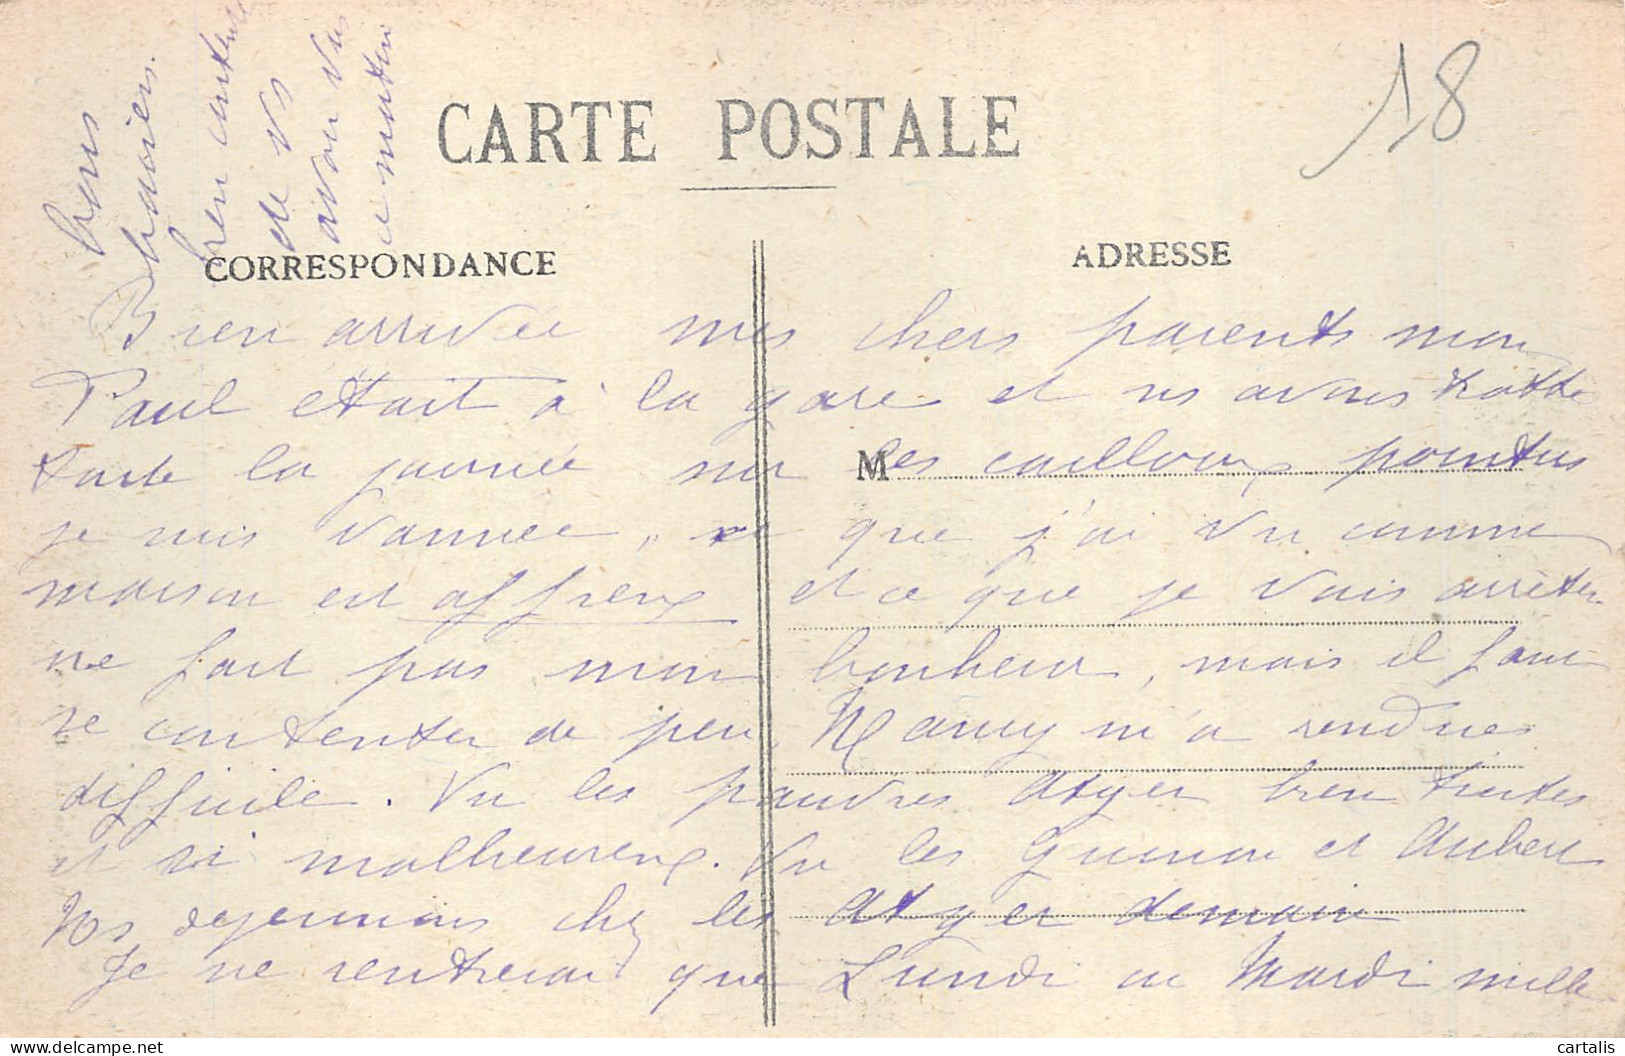 18
CARTE POSTALE
CORRESPONDANCE
ADRESSE
M
Bien arrivée mes chers parents mon
Paul était à la gare et ns avons trotté
toute la journée sur les cailloux pointus
je suis vannée, ce que j'ai vu comme
maison est affreux et ce que je vais arrêter
ne fait pas mon bonheur, mais il faut
se contenter de peu, Nancy m'a rendue
difficile. Vu les pauvres Atger bien tristes
et si malheureux. Vu les et Aubert
Ns déjeunons chez les Atger demain
Je ne rentrerai que Lundi ou Mardi mille
bons
baisers.
bien contente
de vs
avoir vus
ce matin
cartalis